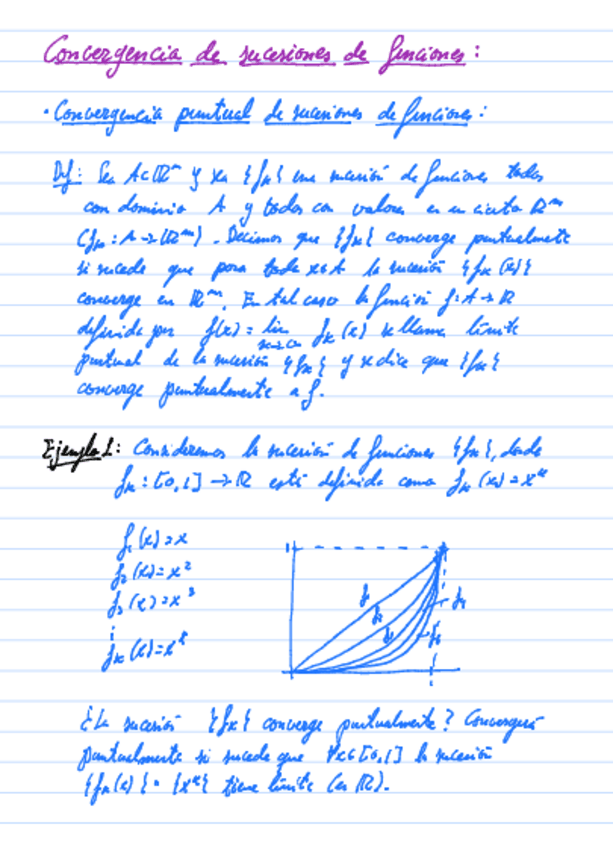 Convergencia de sucesiones de funciones:
· Convergencia puntual de sucesiones de funciones:
Def: Sea A⊂ℝⁿ y sea {fₖ} una sucesión de funciones todas
con dominio A y todas con valores en un cierto ℝᵐ
(fₖ: A→ℝᵐ). Decimos que {fₖ} converge puntualmente
si sucede que para todo x∈A la sucesión {fₖ(x)}
converge en ℝᵐ. En tal caso la función f: A→ℝ
definida por f(x) = lim fₖ(x) se llama límite
k→∞
puntual de la sucesión {fₖ} y se dice que {fₖ}
converge puntualmente a f.
Ejemplo 1: Consideremos la sucesión de funciones {fₖ}, donde
fₖ: [0,1] → ℝ está definida como fₖ(x) = xᵏ
f₁(x) = x
f₂(x) = x²
f₃(x) = x³
⋮
fₖ(x) = xᵏ
1
f₁
f₂
f₃
f₄
1
¿La sucesión {fₖ} converge puntualmente? Convergerá
puntualmente si sucede que ∀x∈[0,1] la sucesión
{fₖ(x)} = {xᵏ} tiene límite (en ℝ).